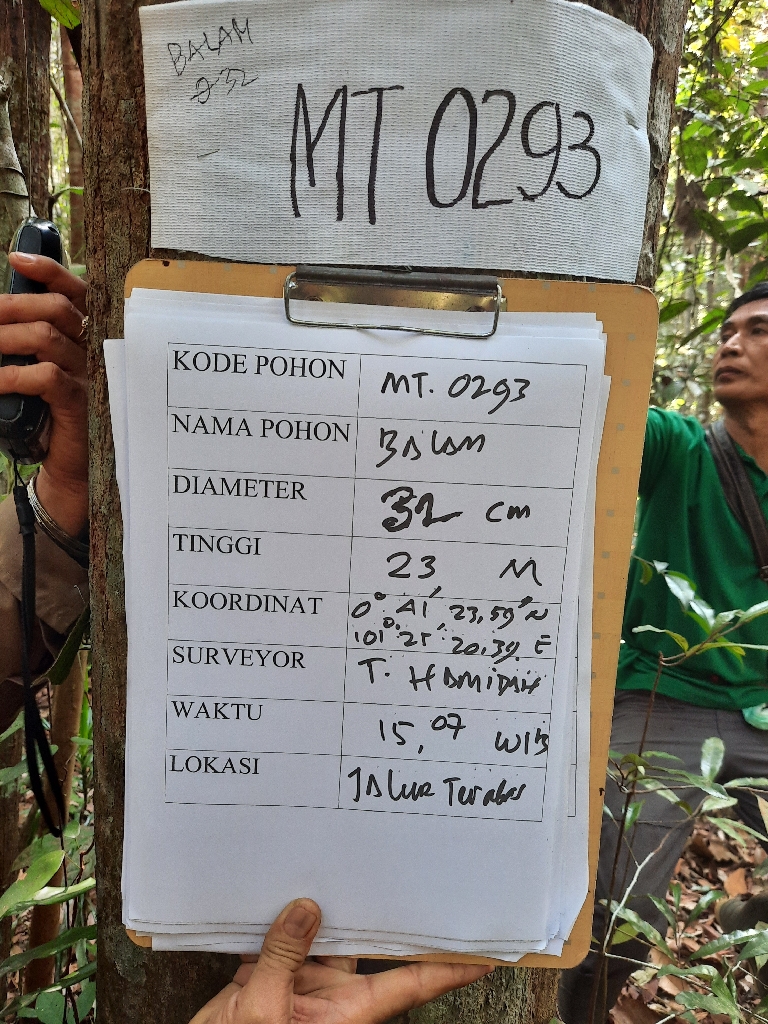 BALAM
232
MT 0293
KODE POHON MT. 0293
NAMA POHON BALAM
DIAMETER 32 cm
TINGGI 23, M
KOORDINAT 0° 41' 23,59" N
101° 25' 20,39 E
SURVEYOR T. HAMIDAH
WAKTU 15,07 WIB
LOKASI JALUR Terabas